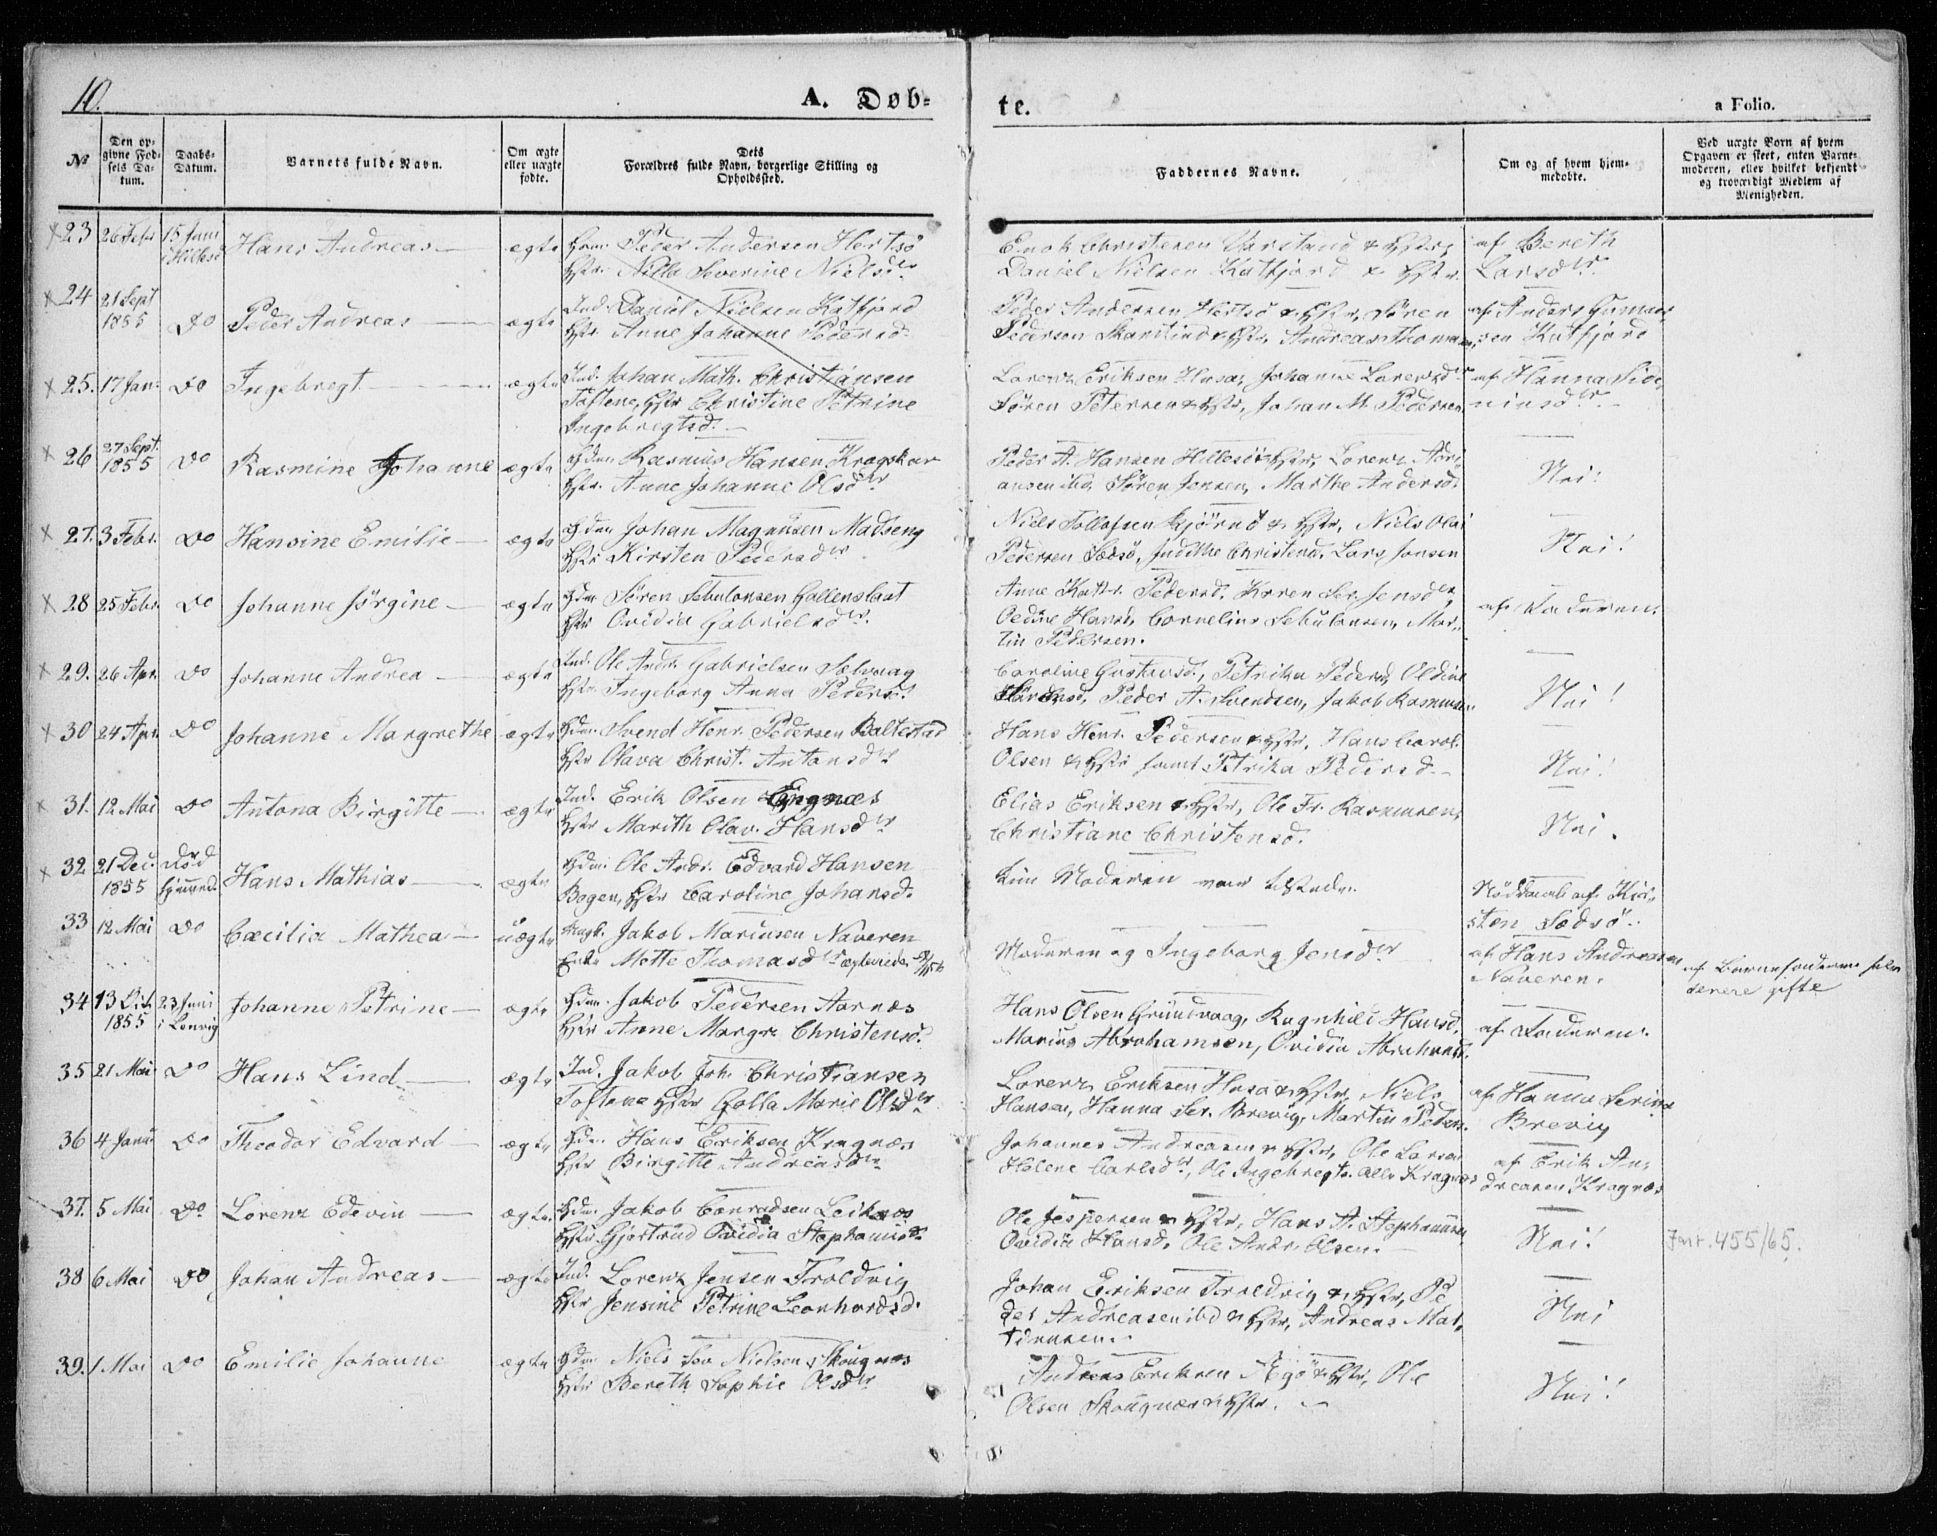 10.
A. Døb-
te.
a Folio.
№
Den op-
givne Fød-
sels Da-
tum.
Daabs-
Datum.
Barnets fulde Navn.
Om ægte
eller uægte
fødte.
Dets
Forældres fulde Navn, borgerlige Stilling og
Opholdssted.
Faddernes Navne.
Om og af hvem hjem-
medøbte.
Ved uægte Børn af hvem
Opgaven er skeet, enten Barne-
moderen, eller hvilket bekjendt
og troværdigt Medlem af
Menigheden.
23 26 Febr 15 Juni Hans Andreas ægte Peder Andersen Hertsö
Nilla Severine Nielsdr
Enok Christensen & Hstr,
Daniel Nielsen Katfjord & Hstr
af Bereth
Larsdr
24 21 Sept 1855 Do Peder Andreas ægte Ind. Daniel Nielsen Katfjord
Hstr Anne Johanne Pedersd.
Peder Andersen Hertsö & Hstr, Sören
Pedersen Skarstind & Hstr, Andreas Thomas
af Anders
sen Katfjord
25. 17 Jan. Do Ingebregt ægte Ind. Johan Math. Christiansen
Toftene, Hstr Christine Petrine
Ingebregtsd.
Lorenz Eriksen Husa, Johanne Lorenzdr
Sören Petersen & Hstr, Johan M. Pedersen
af Hanna
26 27 Sept. 1855 Do Rasmine Johanne ægte Gdm. Rasmus Hansen Kragskar
Hstr. Anne Johanne Olsdr
Peder A. Hansen Hillesö & Hstr, Lorenz Adri-
ansen ibid, Sören Jensen, Marthe Andersd.
Nei!
27. 3 Febr. Do Hansine Emilie ægte Gdm. Johan Magnusen Madseng
Hstr Kirsten Pedersdr
Niels Tollefsen & Hstr, Niels Olai
Pedersen Sedsö, Judithe Christensd, Lars Jensen
Nei!
28 25 Febr. Do Johanne Jörgine ægte Gdm. Sören Sebulonsen
Hstr Ovidia Gabrielsdr.
Anne Kathr. Pedersd. Karen Ser. Jensdr,
Oedine Hansd, Cornelius Sebulonsen, Mar-
tin Pedersen.
af Faderen.
29. 26 Apr. Do Johanne Andrea ægte Ind. Ole Andr. Gabrielsen Sælvaag
Hstr Ingeborg Anna Pedersd.
Caroline Gustavsd., Petrika Pedersd, Oldine
Peder A. Svendsen, Jakob Rasmussen.
Nei!
30 24 Apr. Do Johanne Margrethe ægte Gdm. Svend Henr. Pedersen Baltestad
Hstr Olava Christ. Antonsdr
Hans Henr. Pedersen & Hstr, Hans Carol.
Olsen & Hstr samt Petrika Pedersd.
Nei!
31. 12 Mai Do Antona Birgitte ægte Ind. Erik Olsen Lyngnæs
Hstr Marith Olav. Hansdr
Elias Eriksen & Hstr, Ole Fr. Rasmussen,
Christiane Christensd.
Nei.
32. 21 Dec. 1855 Död Hans Mathias ægte Gdm. Ole Andr. Edvard Hansen
Bogen, Hstr Caroline Johansd.
Kun Moderen var tilstede.
Nöddaab af Kir-
sten Sedsö.
33 12 Mai Do Cæcilia Mathea uægte Jakob Mariusen Naveren
Enke Mette Thomasdr
Moderen og Ingeborg Jensdr
af Hans Andreasen
Naveren.
af Barnefaderen
senere gifte
34 13 1855 23 Juni i Lenvig Johanne Petrine ægte Gdm. Jakob Pedersen Aarnæs
Hstr Anne Margr. Christensd.
Hans Olsen Grundvaag, Ragnhild Hansd.
Marius Abrahamsen, Ovidia Abrahamsd.
af Faderen.
35 21 Mai Do Hans Lind ægte Ind. Jakob Joh. Christiansen
Toftene Hstr Golla Marie Olsdr
Lorenz Eriksen Husa & Hstr, Niels
Hansen, Hanna Ser. Brevig, Martin Peders.
af Hanna Serine
Brevig
36 4 Janu Do Theodor Edvard ægte Gdm. Hans Eriksen Kragnæs
Hstr Birgitte Andreasdr
Johannes Andreasen & Hstr, Ole Larsen
Helene Carlsdr, Ole Ingebregts. alle Kragnæs
af Erik An-
dreasen Kragnæs
37. 5 Mai Do Lorenz Edevin ægte. Gdm. Jakob Conradsen Leiknæs
Hstr Gjertrud Ovidia Stephanusd.
Ole Jespersen & Hstr, Hans A. Stephanusen,
Ovidia Hansd, Ole Andr. Olsen.
Nei!
455/65.
38 6 Mai Do Johan Andreas ægte Ind. Lorenz Jensen Troldvig
Hstr Jensine Petrine Leonhardsd.
Johan Eriksen Troldvig & Hstr, Pe
der Andreasen ibd & Hstr, Andreas Mat-
Nei
39. 1 Mai Do Emilie Johanne ægte Gdm. Niels Nielsen Skougnæs
Hstr Bereth Sophie Olsdr
Andreas Eriksen & Hstr, Ole
Olsen Skougnæs & Hstr.
Nei!